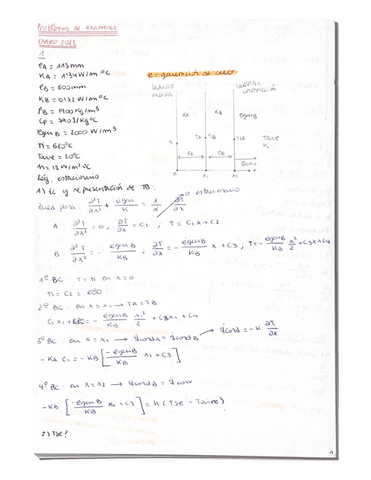 Problemas de exámenes
ENERO 2022
1
eA = 115mm
KA = 1'34 W/m ºC
eB = 600mm
KB = 0'122 W/m ºC
ρB = 1400 Kg/m³
Cp =
egen B = 2000 W/m³
Ti = 680ºC
Taire = 20ºC
h = 15 W/m² ºC
Rég. estacionario
e = generación de calor
ladrillo
ladrillo
construcción
KA
KB
egen B
Ti
TA
TB
Taire
h
eA
eB
x
x1
1) Ec y representación de TB:
∂²T/∂x² + egen/K = 1/α ∂T/∂t → 0 estacionario
A ∂²T/∂x² = 0 ; ∂T/∂x = C1 ; T = C1x + C2
B ∂²T/∂x² = - egenB/KB ; ∂T/∂x = - egenB/KB x + C3 ; T = - egenB/KB x²/2 + C3x + C4
1º BC : T = Ti en x = 0
Ti = C2 = 680
2º BC : en x = x1 → TA = TB
C1x1 + 680 = - egenB/KB x1²/2 + C3x1 + C4
3º BC : en x = x1 → qcondA = qcondB → qcond = -K ∂T/∂x
-KA C1 = -KB [-egenB/KB x1 + C3]
4º BC : en x = x2 → qcondB = qconv
-KB [-egenB/KB x1 + C3] = h (TSE - Taire)
2) TSE?
1